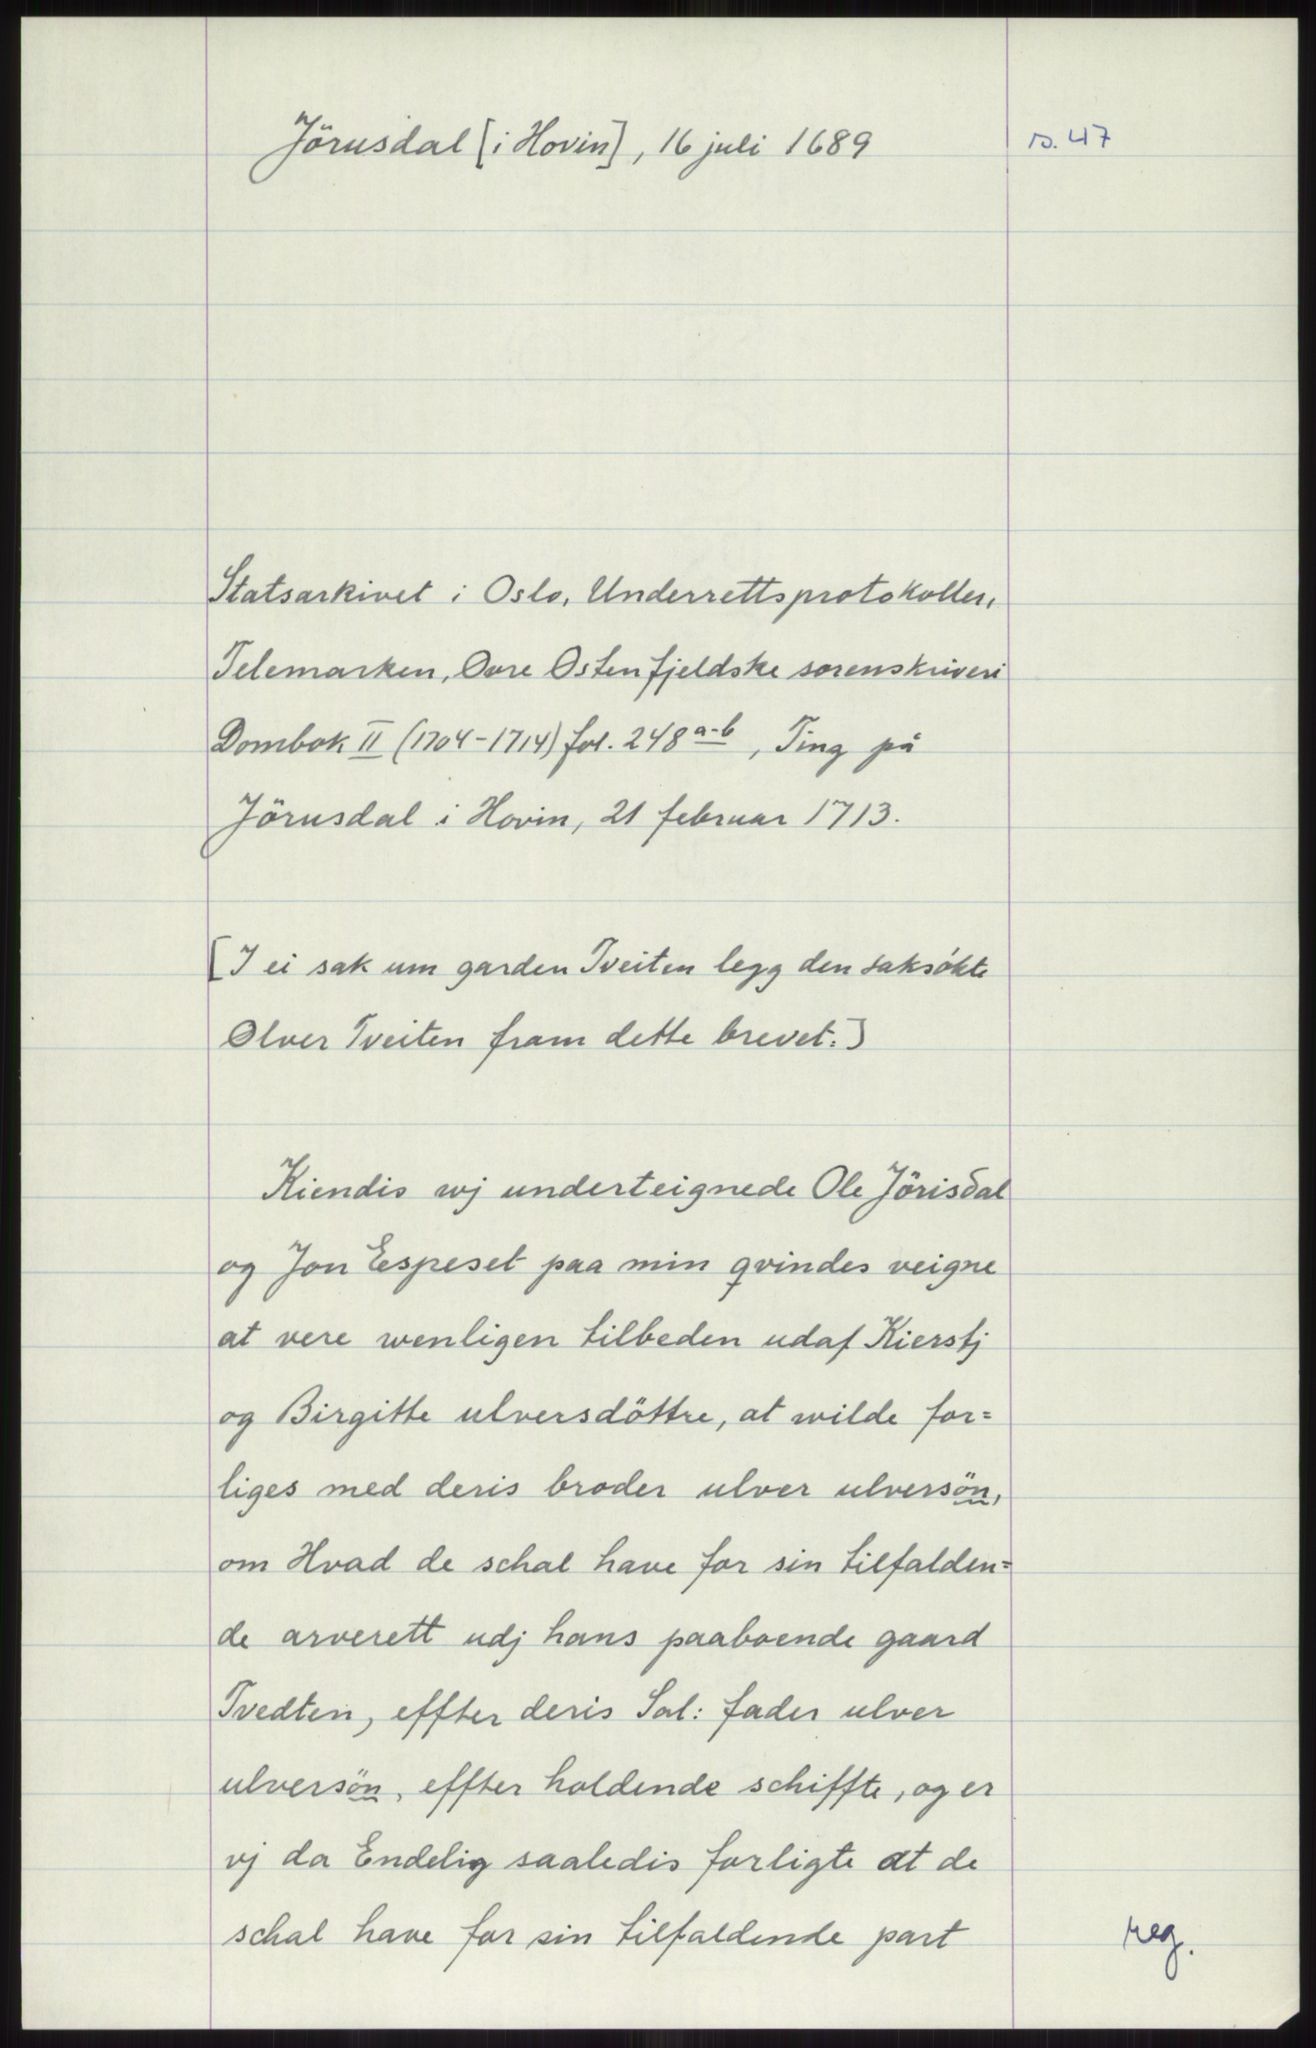 Jörusdal [i Hovin], 16 juli 1689
s. 47
Statsarkivet i Oslo, Underrettsprotokoller,
Telemarken, Øvre Østenfjeldske sorenskriveri
Dombok II (1704-1714) fol. 248 a-b, Ting på
Jörusdal i Hovin, 21 februar 1713.
[I ei sak um garden Tveiten legg den saksøkte
Olver Tveiten fram dette brevet:]
Kiendis wj underteignede Ole Jörisdal
og Jon Espeset paa min qvindes veigne
at vere wenligen tilbeden udaf Kierstj
og Birgitte ulversdöttre, at wilde for=
liges med deris broder ulver ulversön,
om Hvad de schal have for sin tilfalden=
de arverett udj hans paaboende gaard
Tvedten, effter deris Sal: fader ulver
ulversön, effter holdende schiffte, og er
vj da Endelig saaledis forligte at de
schal have for sin tilfaldende part
reg.